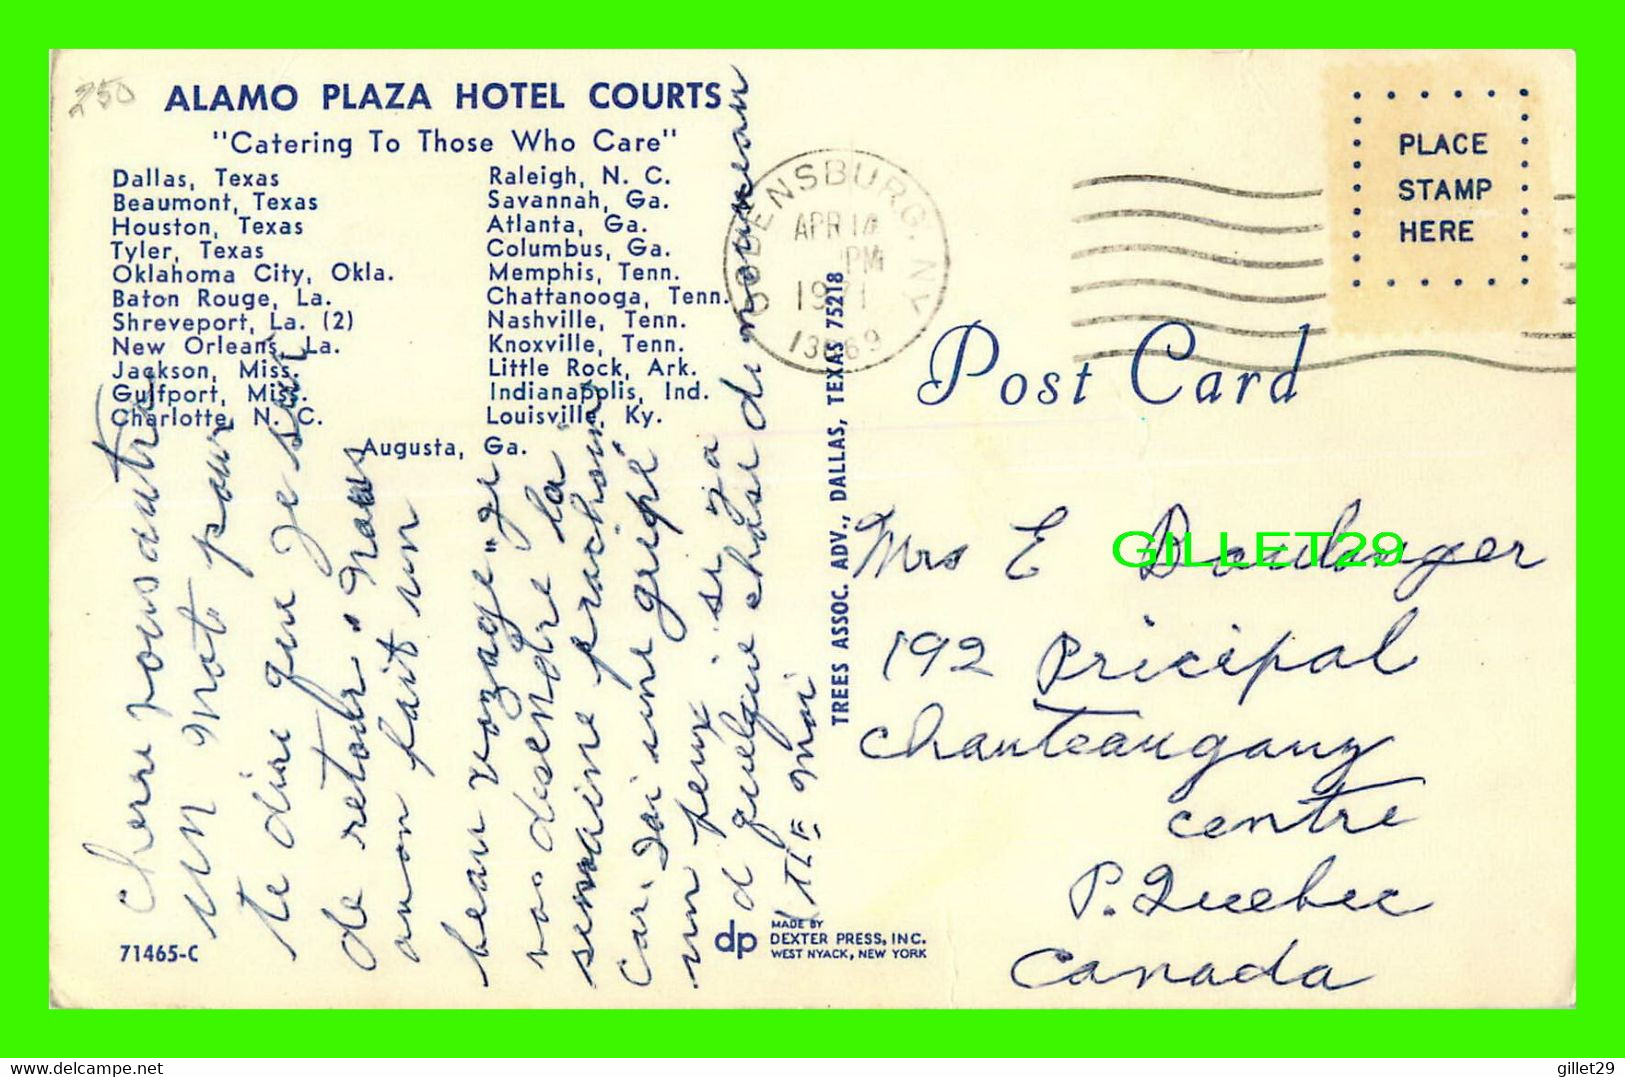 250
ALAMO PLAZA HOTEL COURTS
"Catering To Those Who Care"
Dallas, Texas
Beaumont, Texas
Houston, Texas
Tyler, Texas
Oklahoma City, Okla.
Baton Rouge, La.
Shreveport, La. (2)
New Orleans, La.
Jackson, Miss.
Gulfport, Miss.
Charlotte, N. C.
Raleigh, N. C.
Savannah, Ga.
Atlanta, Ga.
Columbus, Ga.
Memphis, Tenn.
Chattanooga, Tenn.
Nashville, Tenn.
Knoxville, Tenn.
Little Rock, Ark.
Indianapolis, Ind.
Louisville, Ky.
Augusta, Ga.
un mot pour
te dire que je sui
de retour" nous
avon fait un
beau vozage" je
vas desendre la
semaine prachoine
Car. Jai une gripe
un peux si za
d quelque chose di nouveau
71465-C
dp
MADE BY
DEXTER PRESS, INC.
WEST NYACK, NEW YORK
TREES ASSOC. ADV., DALLAS, TEXAS 75218
OGDENSBURG. NY
APR 14
PM
1971
13669
PLACE
STAMP
HERE
Post Card
Mrs E Boulenger
192 Pricipal
Chauteauguay
centre
P. Quebec
Canada
GILLET29
https://www.delcampe.net
gillet29